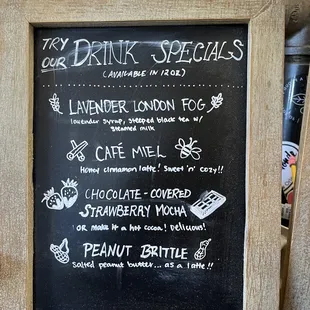 TRY
OUR
DRINK SPECIALS
(AVAILABLE IN 12OZ)
LAVENDER LONDON FOG
lavender syrup, steeped black tea w/
steamed milk
CAFÉ MIEL
Honey cinnamon latte! Sweet 'n' cozy!!
CHOCOLATE-COVERED
STRAWBERRY MOCHA
OR make it a hot cocoa! Delicious!
PEANUT BRITTLE
Salted peanut butter... as a latte!!